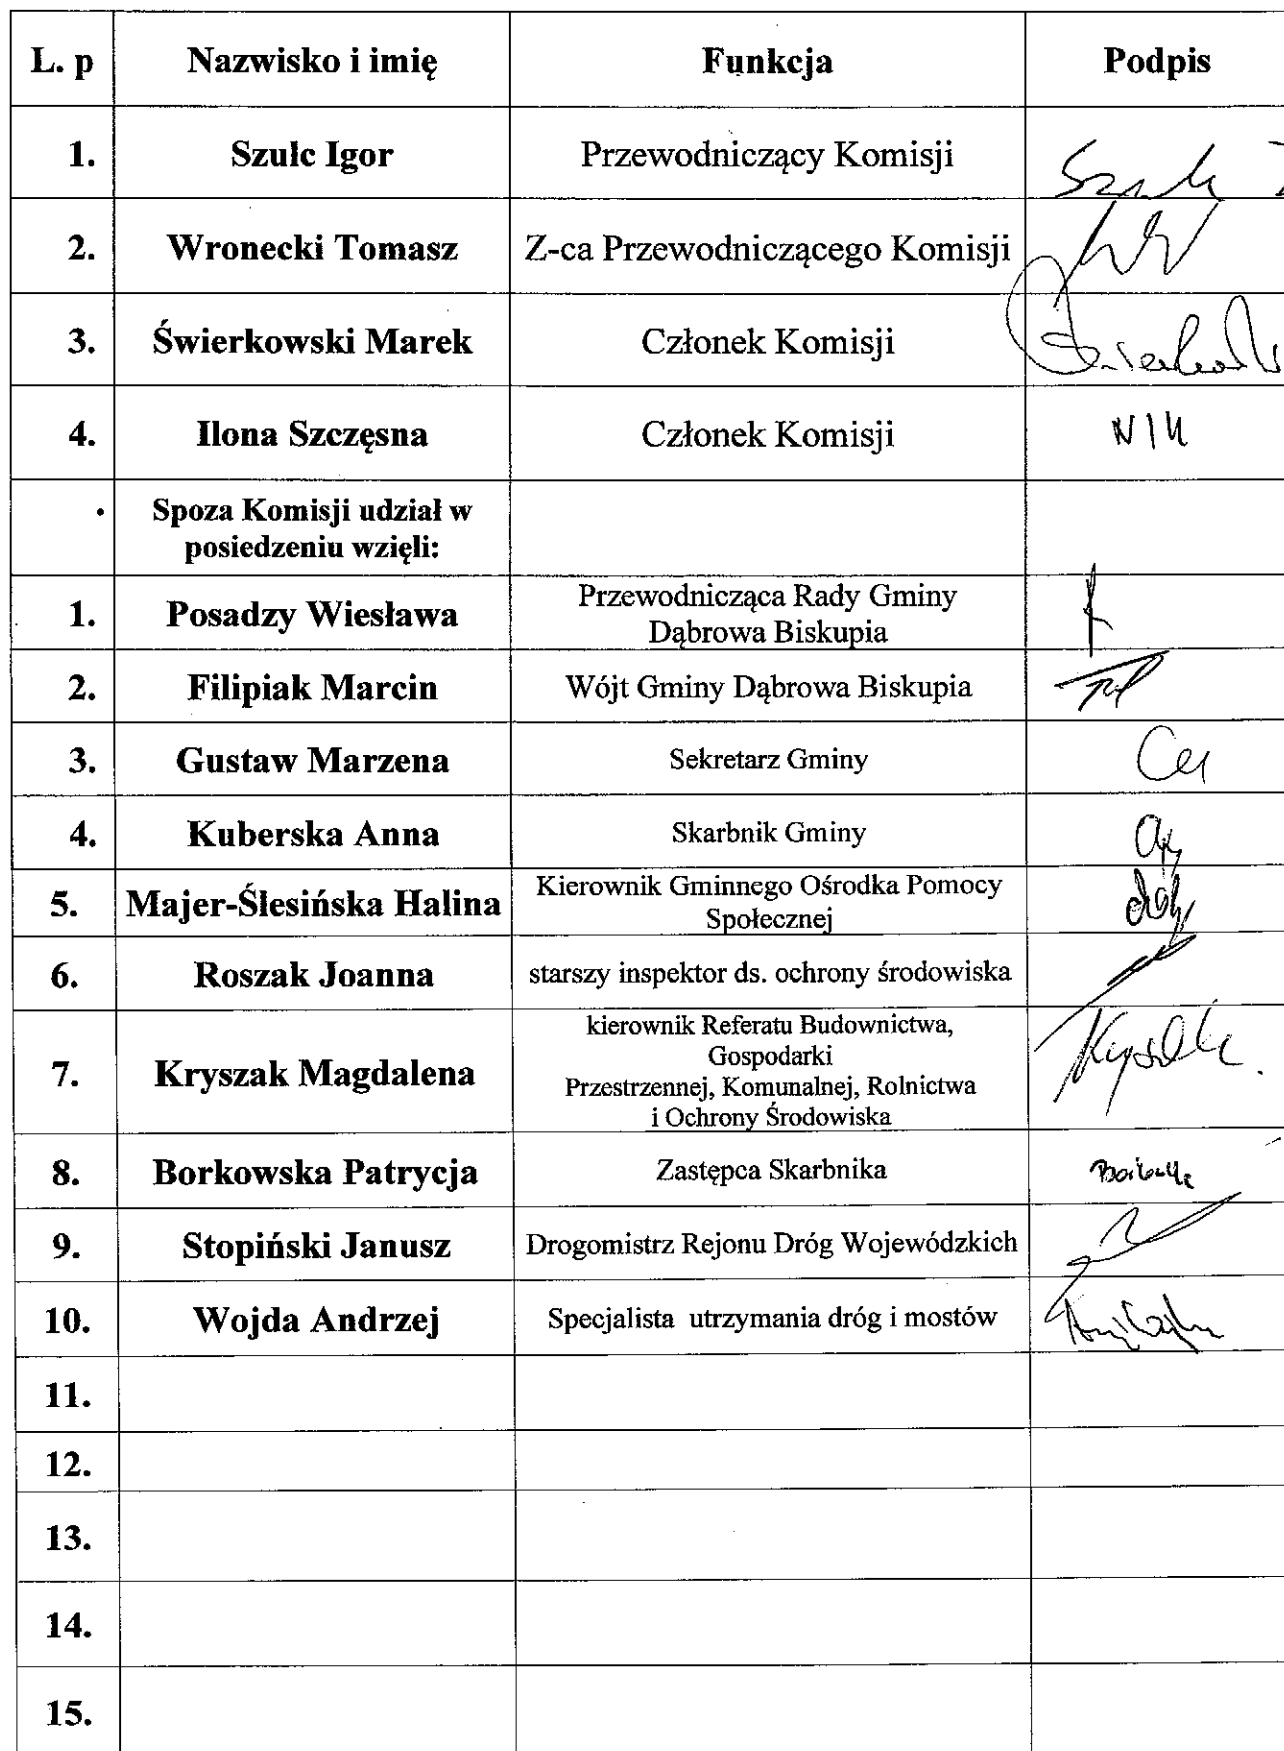 L. p Nazwisko i imię Funkcja Podpis
1. Szulc Igor Przewodniczący Komisji
2. Wronecki Tomasz Z-ca Przewodniczącego Komisji
3. Świerkowski Marek Członek Komisji
4. Ilona Szczęsna Członek Komisji
Spoza Komisji udział w
posiedzeniu wzięli:
1. Posadzy Wiesława Przewodnicząca Rady Gminy
Dąbrowa Biskupia
2. Filipiak Marcin Wójt Gminy Dąbrowa Biskupia
3. Gustaw Marzena Sekretarz Gminy
4. Kuberska Anna Skarbnik Gminy
5. Majer-Ślesińska Halina Kierownik Gminnego Ośrodka Pomocy
Społecznej
6. Roszak Joanna starszy inspektor ds. ochrony środowiska
7. Kryszak Magdalena kierownik Referatu Budownictwa,
Gospodarki
Przestrzennej, Komunalnej, Rolnictwa
i Ochrony Środowiska
8. Borkowska Patrycja Zastępca Skarbnika
9. Stopiński Janusz Drogomistrz Rejonu Dróg Wojewódzkich
10. Wojda Andrzej Specjalista utrzymania dróg i mostów
11.
12.
13.
14.
15.